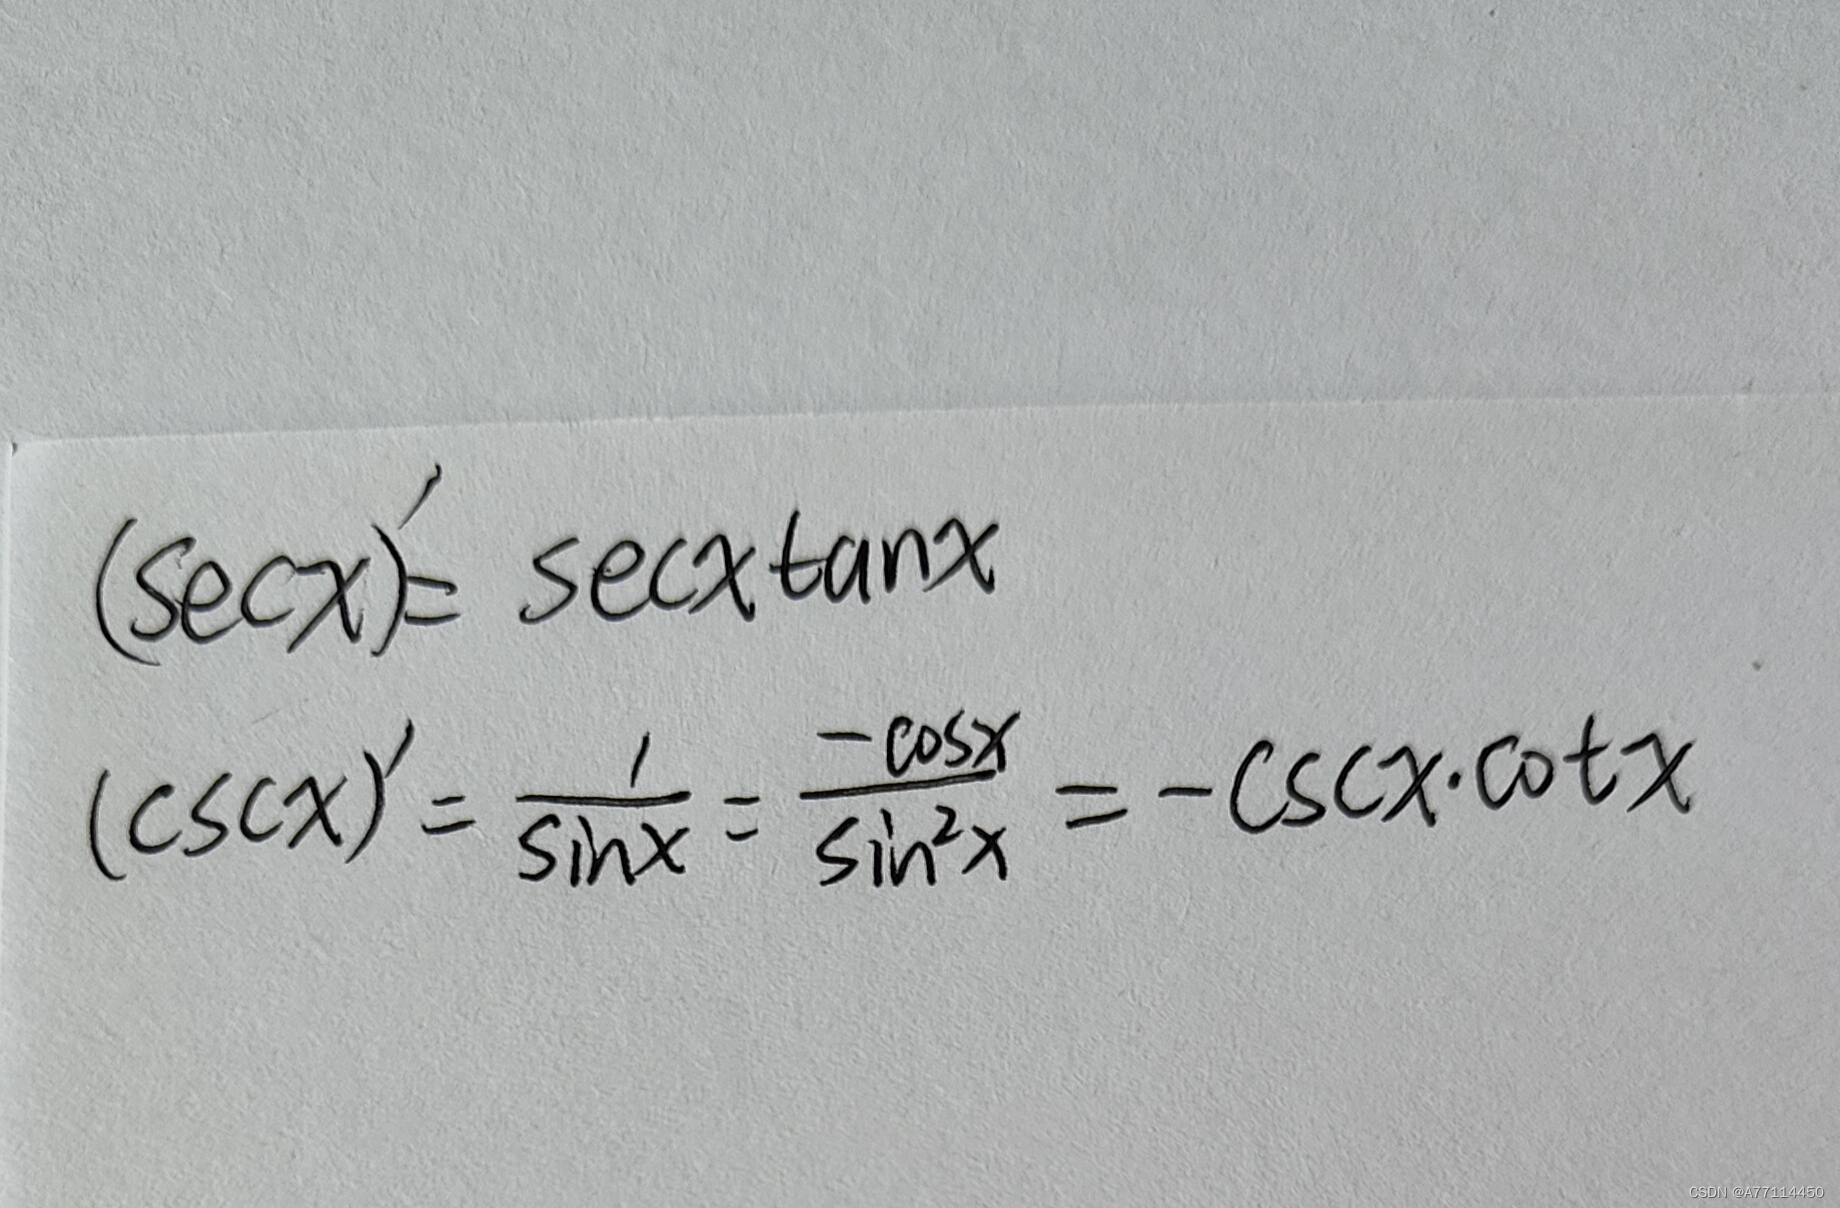 (secx)′= secxtanx
(cscx)′ = 1/sinx = -cosx/sin²x = -cscx·cotx
CSDN @A77114450